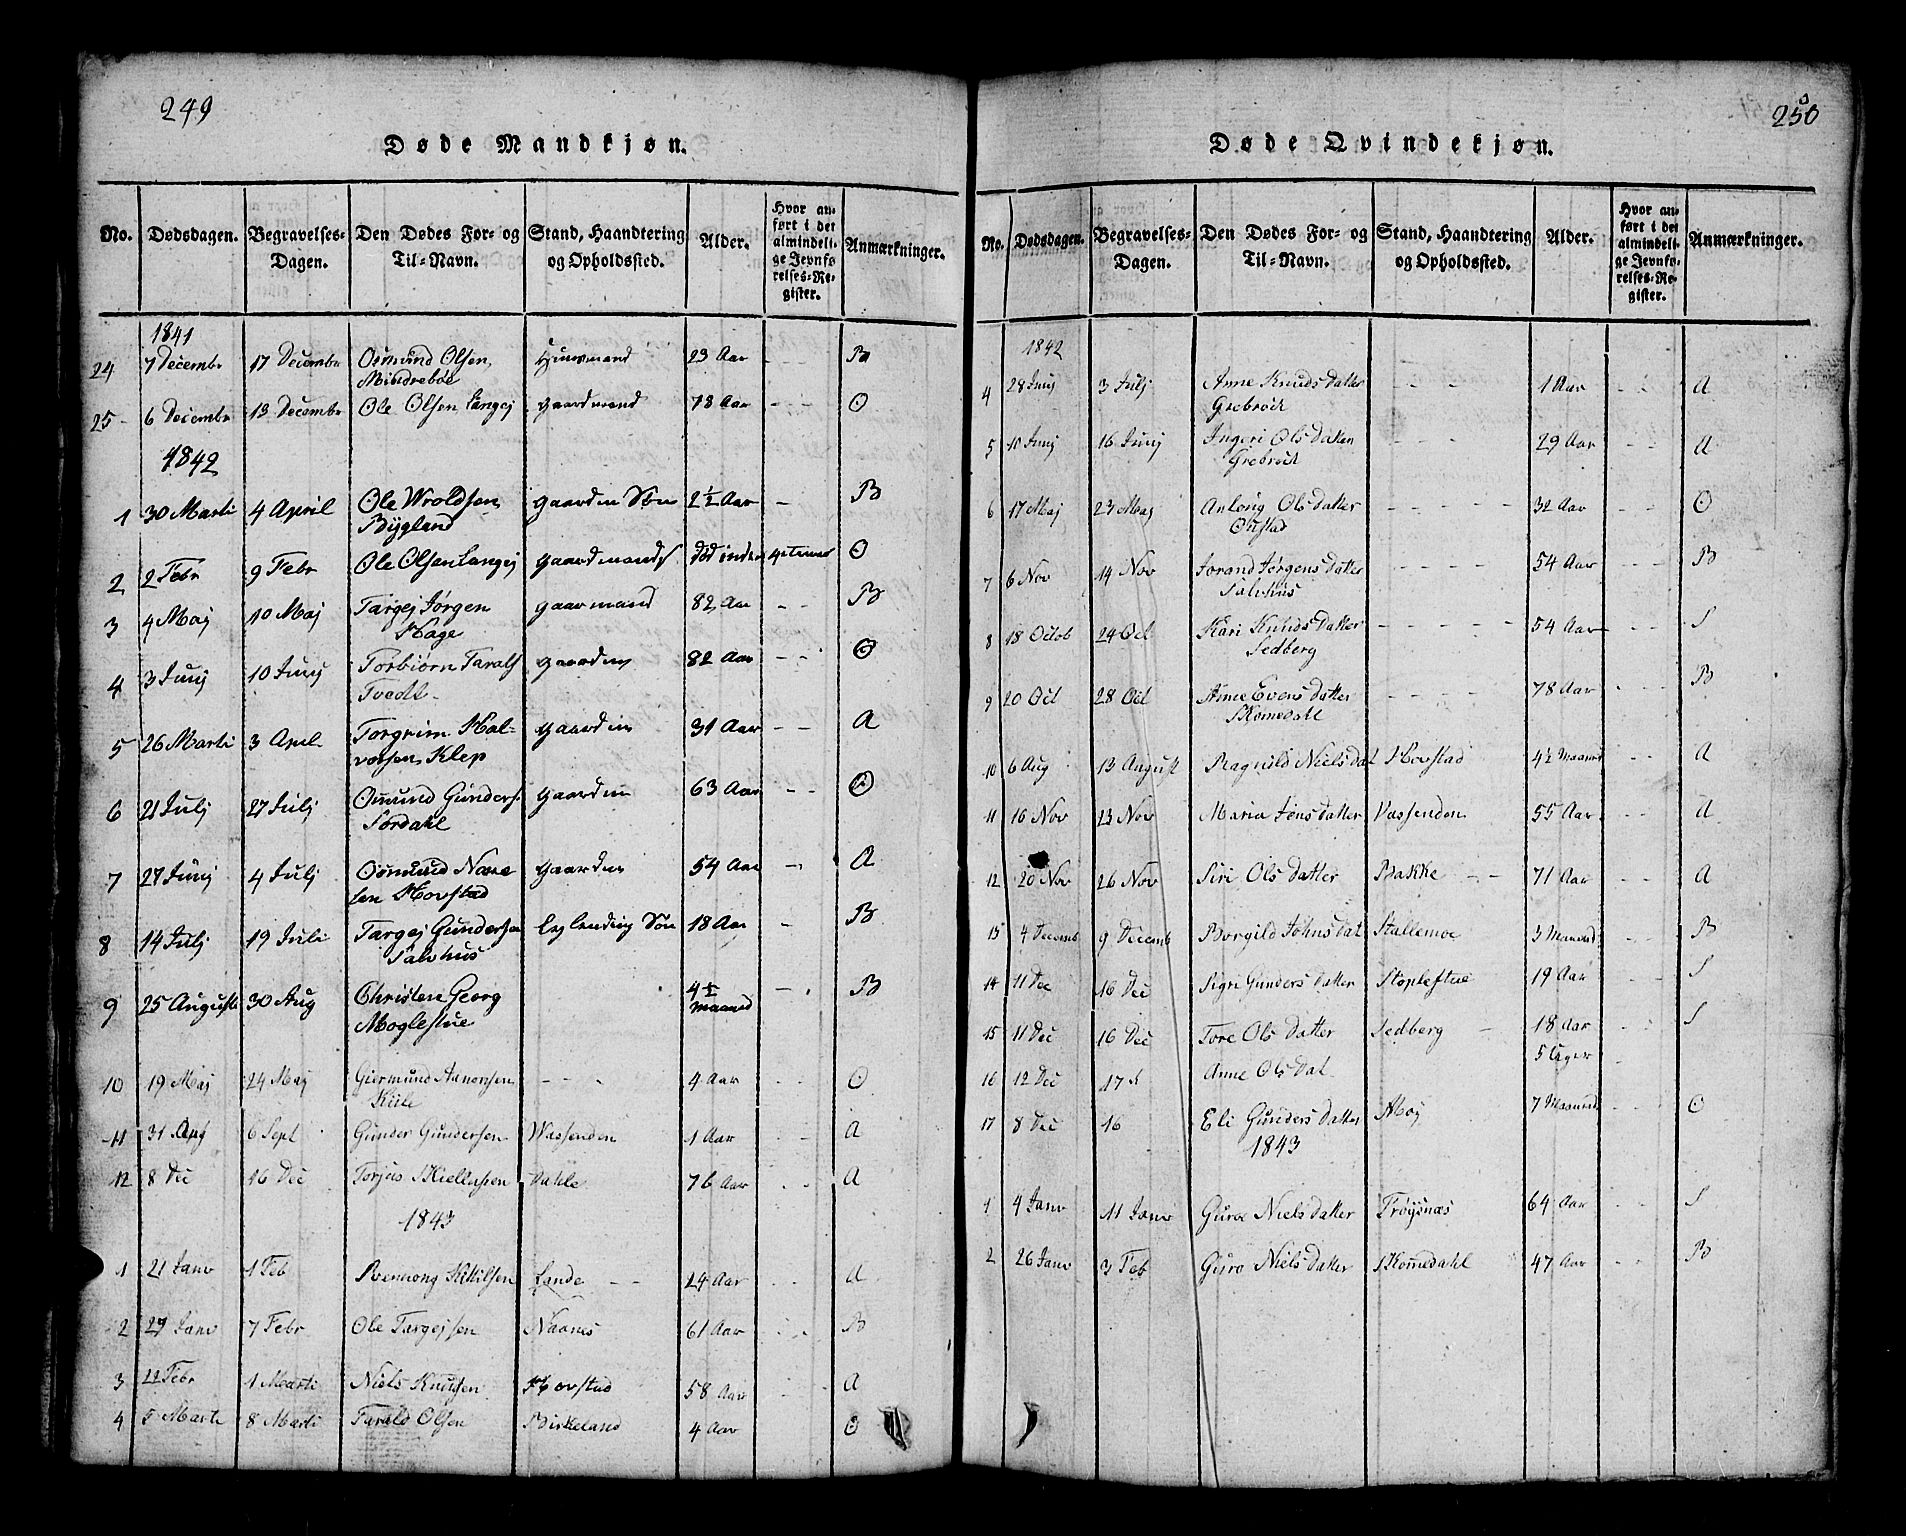 249
Døde Mandkjøn.
No. Dødsdagen. Begravelses-Dagen. Den Dødes For- og Til-Navn. Stand, Haandtering og Opholdssted. Alder. Hvor anført i det almindelige Jevnførelses-Register. Anmærkninger.
1841
24 7 Decembr 17 Decembr Osmund Olsen Huusmand 23 Aar - - B
Mindreböe
25 - 6 Decembr 13 Decembr Ole Olsen Langej gaardmand 78 Aar - - O
1842
1 30 Marti 4 April Ole Wroldsen gaardm Sön 2½ Aar - B
Bÿgland
2 2 Febr 9 Febr Ole Olsen Langej gaardmands död inden 4 timer O
3 4 Maj 10 Maj Targej Jörgen gaarmand 82 Aar - - B
Hage
4 3 Junj 10 Junj Torbiörn Taralds gaardm 82 Aar - - O
Tvedt
5 26 Marti 3 Apel Torgrim Hal- gaardm 31 Aar - - A
vorsen Klep
6 21 Julj 27 Julj Osmund Gunders gaardm 63 Aar - - O
Sordahl
7 27 Junj 4 Julj Osmund Nane gaardm 54 Aar - A
sen Hovstad
8 14 Julj 19 Juli Targej Gundersen Leylending Sön 18 Aar - B
Salvhus
9 25 Auguste 30 Aug Christen Georg 4½ maaned - B
Moglestue
10 19 Maj 24 Maj Giermund Aanonsen - - - 4 Aar - - O
Kiile
11 31 Aug 6 Sept Gunder Gundersen Vassenden 1 Aar - - A
12 8 Dec 16 Dec Torjus Dahle 76 Aar - - A
1843
1 21 Janv 1 Feb Ketilsen Lande - - 24 Aar - - A
2 27 Janv 7 Febr Ole Targejsen Naanes 61 Aar - - B
3 22 Febr 1 Marti Niels Knudsen Hovstad 58 Aar - - A
4 5 Marti 8 Marti Tarald Olsen Birkeland 4 Aar O
250
Døde Qvindekjøn.
No. Dødsdagen. Begravelses-Dagen. Den Dødes For- og Til-Navn. Stand, Haandtering og Opholdssted. Alder. Hvor anført i det almindelige Jevnførelses-Register. Anmærkninger.
1842
4 28 Junj 3 Julj Anne Knuds Datter - - - 1 Aar - - A
Grebröd
5 10 Junj 16 Junj Ingeri Ols Datter - - - - 29 Aar - - A
Grebröd
6 17 Maj 23 Maj Anlong Ols Datter - - - - - 32 Aar - - O
7 6 Nov 14 Nov Jorand Jörgens Datter - - - - - 54 Aar - - B
Salvhus
8 18 Octob 24 Oct Kari Knuds Datter - - - - - 54 Aar - - S
Sedberg
9 20 Oct 28 Oct Anne Evens Datter - - - - 78 Aar - - B
Skomedahl
10 6 Aug 13 August Ragnild Niels Dat Hovstad 4½ Maaned - - A
11 16 Nov 23 Nov Maria Jens Datter Vassenden 55 Aar - - A
12 20 Nov 26 Nov Siri Ols Datter Bakke - - 71 Aar - - A
13 4 Decemb 9 Decemb Borgild Johns Dat Stallemoe 3 Maaned - - B
14 11 Dec 16 Dec Sigri Gunders Datter Stopleftue 19 Aar - - S
15 11 Dec 16 Dec Tore Ols Datter Sedberg - 18 Aar - - S
16 12 Dec 17 Anne Ols Dat 5 Uger -
17 8 Dec 16 Eli Gunders Datter Moj 7 Maaned - - O
1843
1 4 Janv 11 Janv Guroe Niels Datter Fröysnæs 64 Aar - - S
2 26 Janv 3 Feb Guro Niels Datter Skomedahl 47 Aar - - B